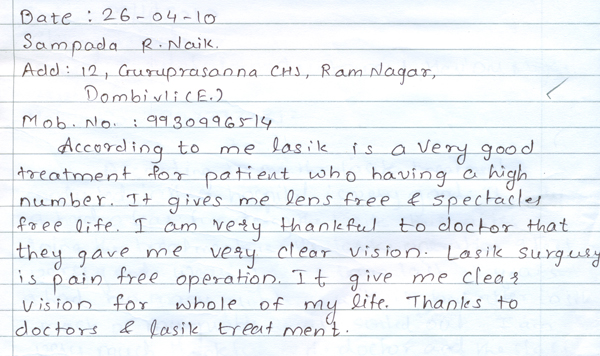 Date : 26-04-10
Sampada R. Naik.
Add : 12, Guruprasanna CHS, Ram Nagar,
Dombivli (E.)
Mob. No. : 9930996514
According to me lasik is a very good
treatment for patient who having a high
number. It gives me lens free & spectacles
free life. I am very thankful to doctor that
they gave me very clear vision. Lasik surgusy
is pain free operation. It give me clear
vision for whole of my life. Thanks to
doctors & lasik treat ment.